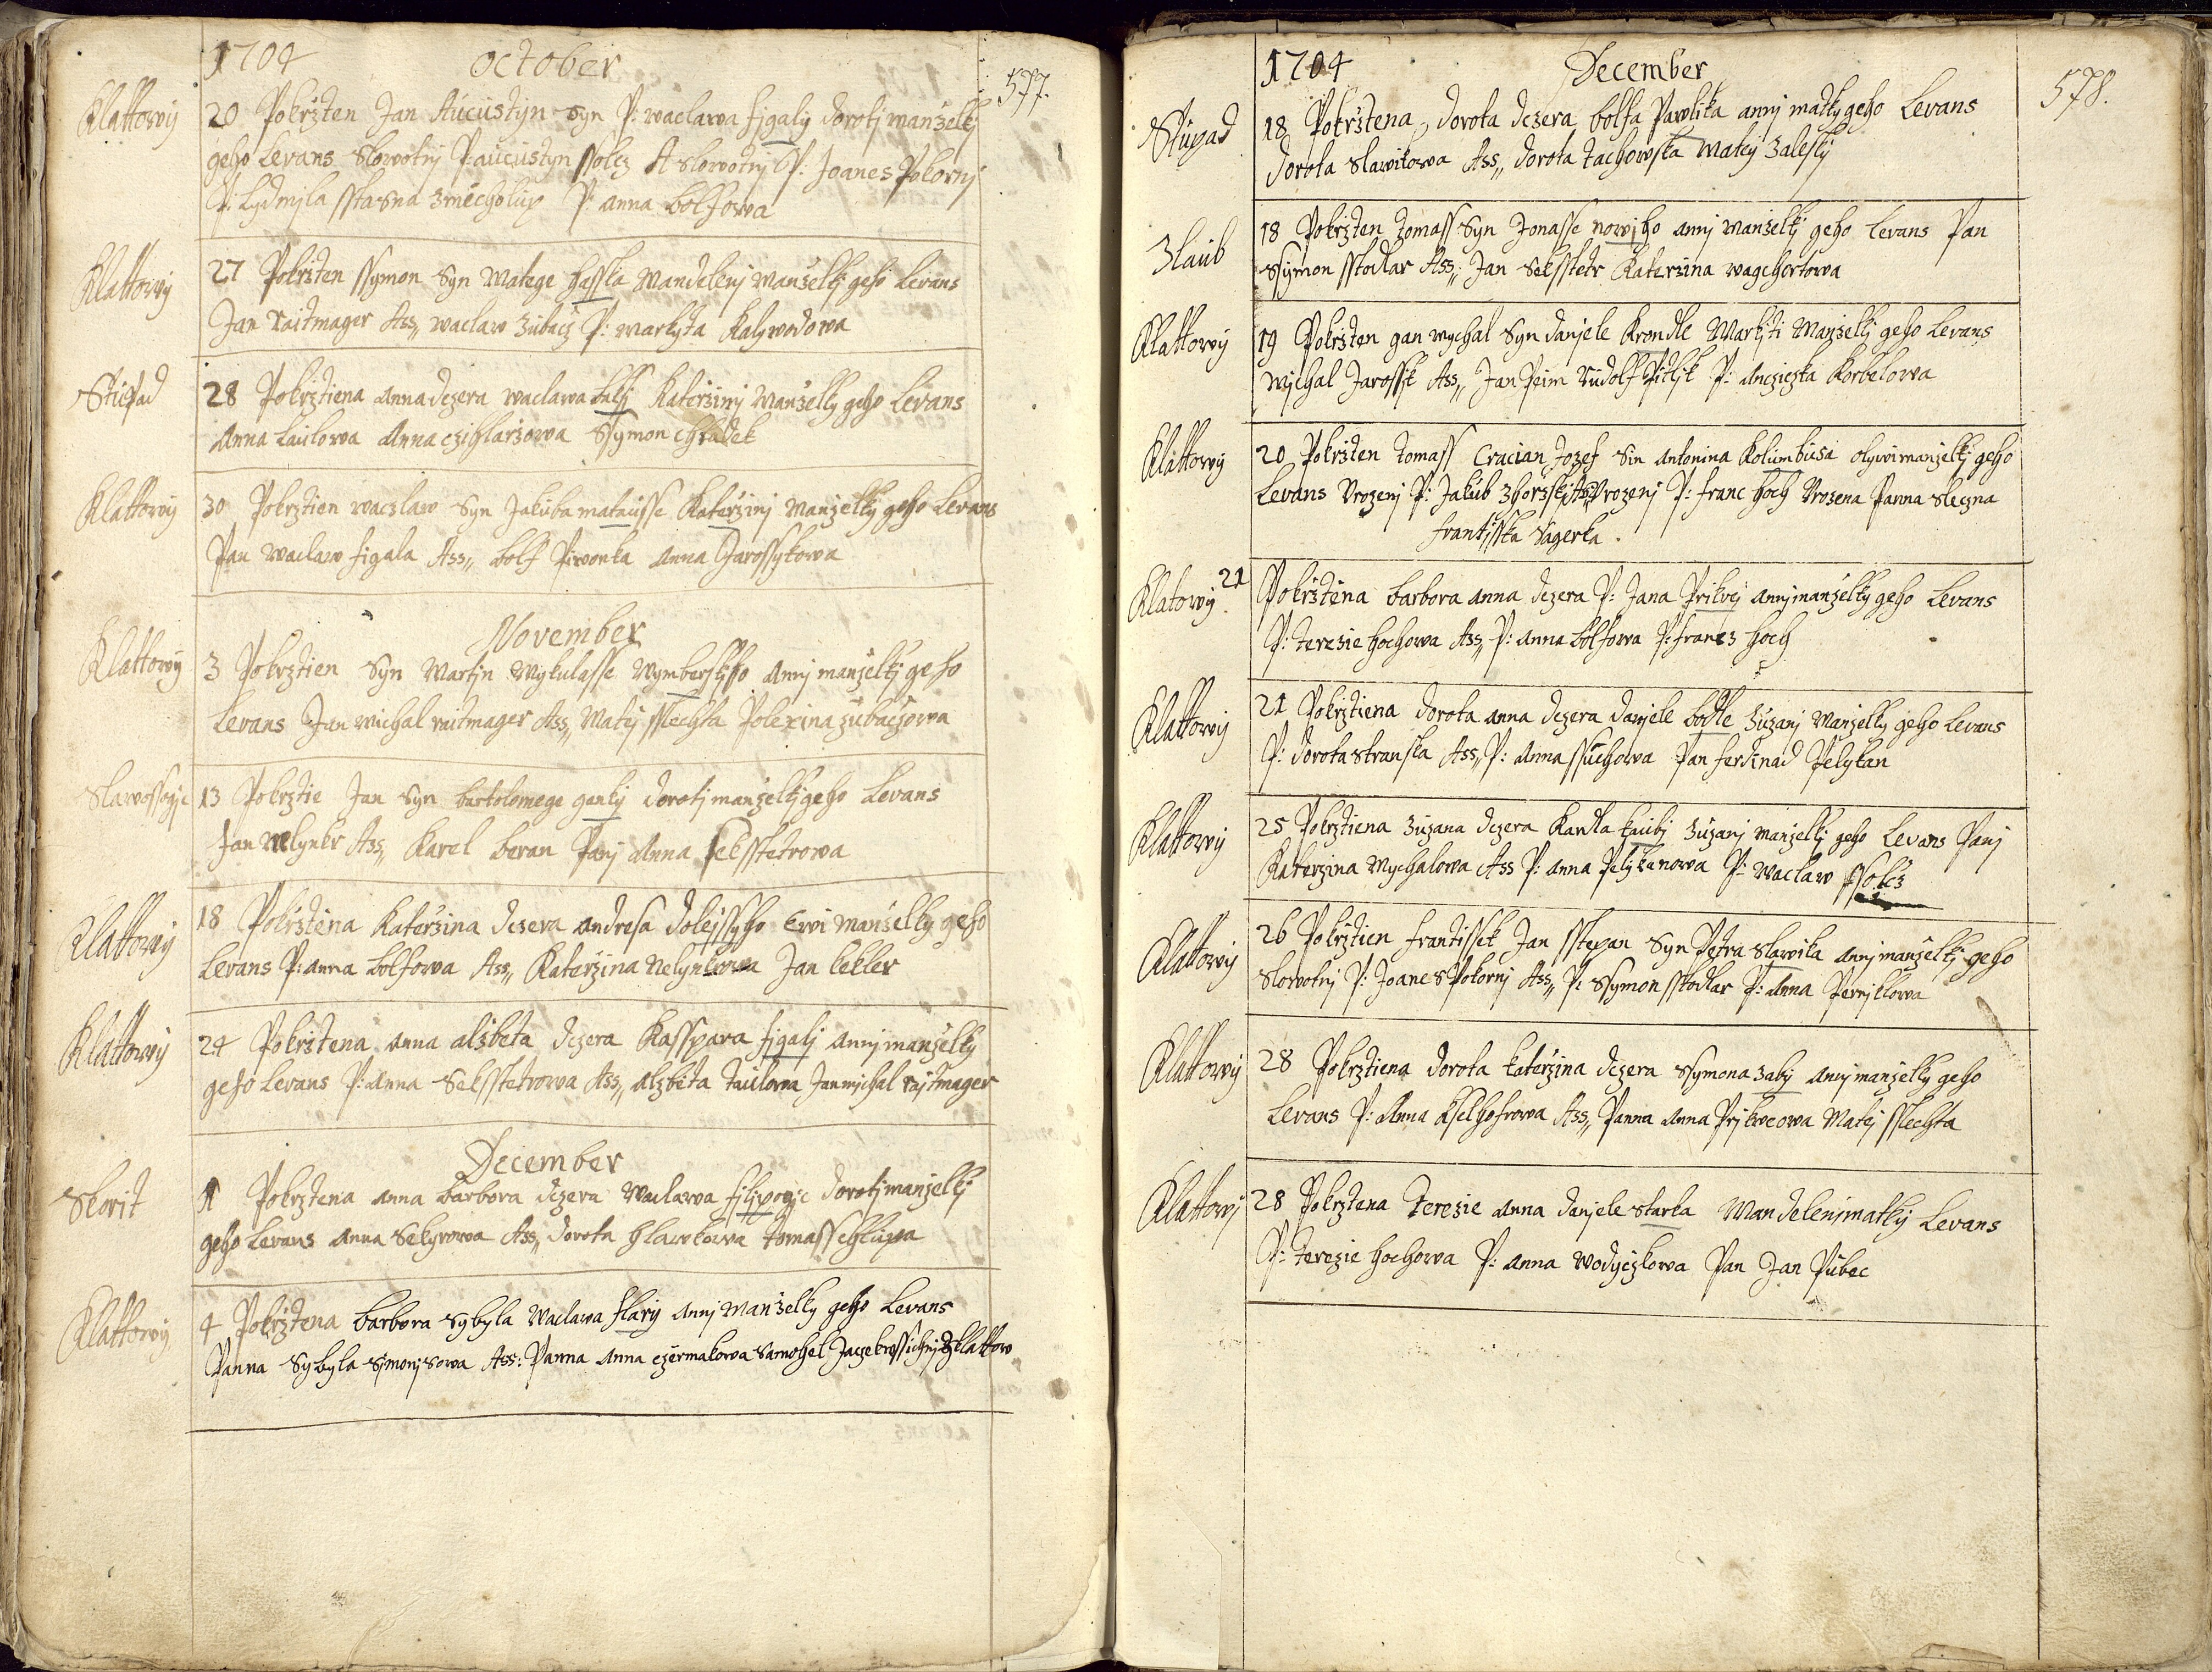 1704 October 577.
Klattowy 20 Pokrzten Jan Aucustyn Syn P: waclawa figaly doroty manzelky
geho Levans Slowotny P: aucustyn ssolcz A Slowotny P: Joanes Pokorny
P: Lydmila sstasna zmecholup P: anna bolfowa
Klattowy 27 Pokrzten ssymon Syn Matege hasska Mandeleny Manzelky geho Levans
Jan raitmager Ass,, waclaw zubacz P: markyta Kalywodowa
Stupad 28 Pokrztiena anna dczera waclawa Katerziny Manzelky geho Levans
Anna Laulowa Anna czihlarzowa Ssymon chladek
Klattowy 30 Pokrztien waczlaw Syn Jakuba matausse Katerziny manzelky geho Levans
Pan waclaw figala Ass,, bolf Piwonka Anna Jarossykowa
November
Klattowy 3 Pokrztien Syn Martin Mykulasse Wymberskyho Anny manzelky geho
Levans Jan michal raitmager Ass,, Matej sslechta Polexina zubaczowa
Slawossogic 13 Pokrztie Jan Syn bartolomege ganky doroty manzelky geho Levans
Jan mlynkr Ass,, Karel beran Pany Anna seksstetrowa
Klattowy 18 Pokrztena Katerzina dczera andresa dolejssyho Ewi manzelky geho
Levans P: anna bolfowa Ass,, Katerzina Jan kekler
Klattowy 24 Pokrztena Anna alzbeta dczera Kasspara figaly anny manzelky
geho Levans P: Anna Seksstetrowa Ass,, alzbeta Taulowa Jan michal rajtmager
December
Skorit 1 Pokrztena anna barbora dczera Waclawa filipogic doroty manzelky
geho Levans anna Sekyrowa Ass,, dorota hlawkowa tomass chlupa
Klattowy 4 Pokrztena barbora Sybyla Waclawa flary Anny Manzelky geho Levans
Panna Sybyla Simonysowa Ass: Panna Anna czermakowa Samohel
1704 December 578.
Stupad 18 Pokrztena dorota dczera bolfa Pawlika anny matky geho Levans
dorota Slawikowa Ass,, dorota tachowska Matej Zalesky
Zlaub 18 Pokrzten tomass Syn Jonasse nowyho anny manzelky geho Levans Pan
Ssymon sstodlar Ass,, Jan Seksstetr Katerzina wagchertowa
Klattowy 19 Pokrzten gan mychal Syn danjele Krondle Markyti Manzelky geho Levans
Mychal Jarossik Ass,, Jan Peim Rudolf Pitlik P: Ancziczka Korbelowa
Klattowy 20 Pokrzten tomass Cracian Jozef Sin antonina Kolumbusa olywi manzelky geho
Levans Urozeny P: Jakub zhorsky Ass,, Urozeny P: franc hoch Urozena Panna Sleczna
frantisska Sagerka.
Klatowy. 21 Pokrztena barbora anna dczera P: Jana Prikrej anny manzelky geho Levans
P: terezie hochowa Ass,, P: anna bolfowa P: francz hoch
Klattowy 21 Pokrztiena dorota anna dczera danjele bodle zuzany Manzelky geho Levans
P: dorota stranska Ass,, P: Anna ssuchowa Pan ferdinad Pelykan
Klattowy 25 Pokrztiena zuzana dczera Karla kauby zuzany manzelky geho Levans Pany
Katerzina Mychalowa Ass P: anna Pelykanowa P: waclaw ssolcz
Klattowy 26 Pokrztien frantissek Jan sstepan Syn Petra Slawika anny manzelky geho
Slowotny P: Joanes Pokorny Ass,, P: Ssymon sstodlar P: Anna Pernjklowa
Klattowy 28 Pokrztiena dorota katerzina dczera Ssymona zaby Anny manzelky geho
Levans P: Anna Ass,, Panna anna Prikrcowa Matej sslechta
Klattowy 28 Pokrztena Terezie anna danjele starka Mandeleny matky Levans
P: terezie hochowa P: anna wodyczkowa Pan Jan Pubec